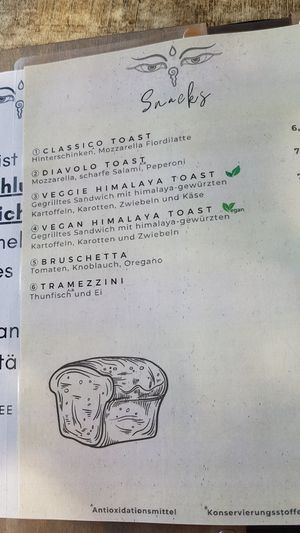 Snacks
① CLASSICO TOAST
Hinterschinken, Mozzarella Fiordilatte
② DIAVOLO TOAST
Mozzarella, scharfe Salami, Peperoni
③ VEGGIE HIMALAYA TOAST
Gegrilltes Sandwich mit himalaya-gewürzten
Kartoffeln, Karotten, Zwiebeln und Käse
④ VEGAN HIMALAYA TOAST vegan
Gegrilltes Sandwich mit himalaya-gewürzten
Kartoffeln, Karotten und Zwiebeln
⑤ BRUSCHETTA
Tomaten, Knoblauch, Oregano
⑥ TRAMEZZINI
Thunfisch und Ei
Antioxidationsmittel
Konservierungsstoffe
ist
hlu
ich
nel
es
an
tä
EE
6,
7